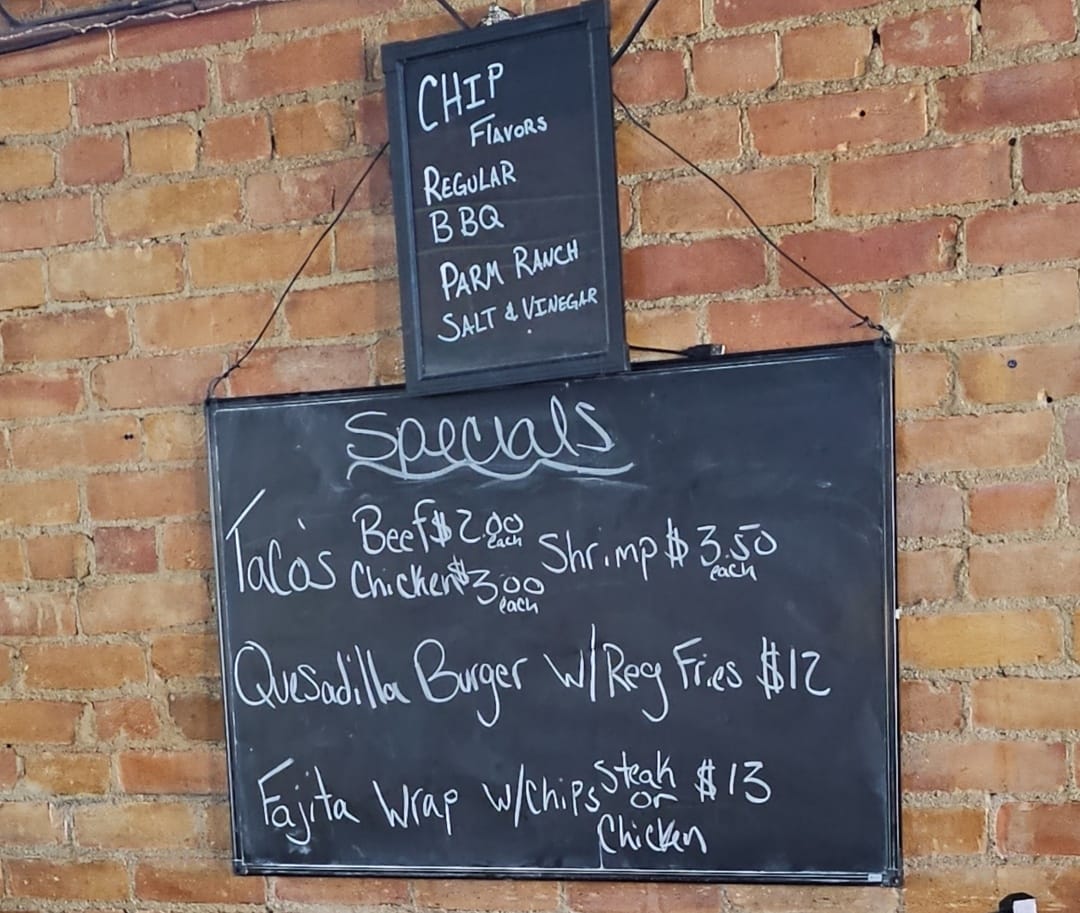 CHIP
FLAVORS
REGULAR
BBQ
PARM RANCH
SALT & VINEGAR
Specials
Taco's Beef $2.00 each Shrimp $3.50 each
Chicken $3.00 each
Quesadilla Burger w/Reg Fries $12
Fajita Wrap w/Chips Steak or Chicken $13